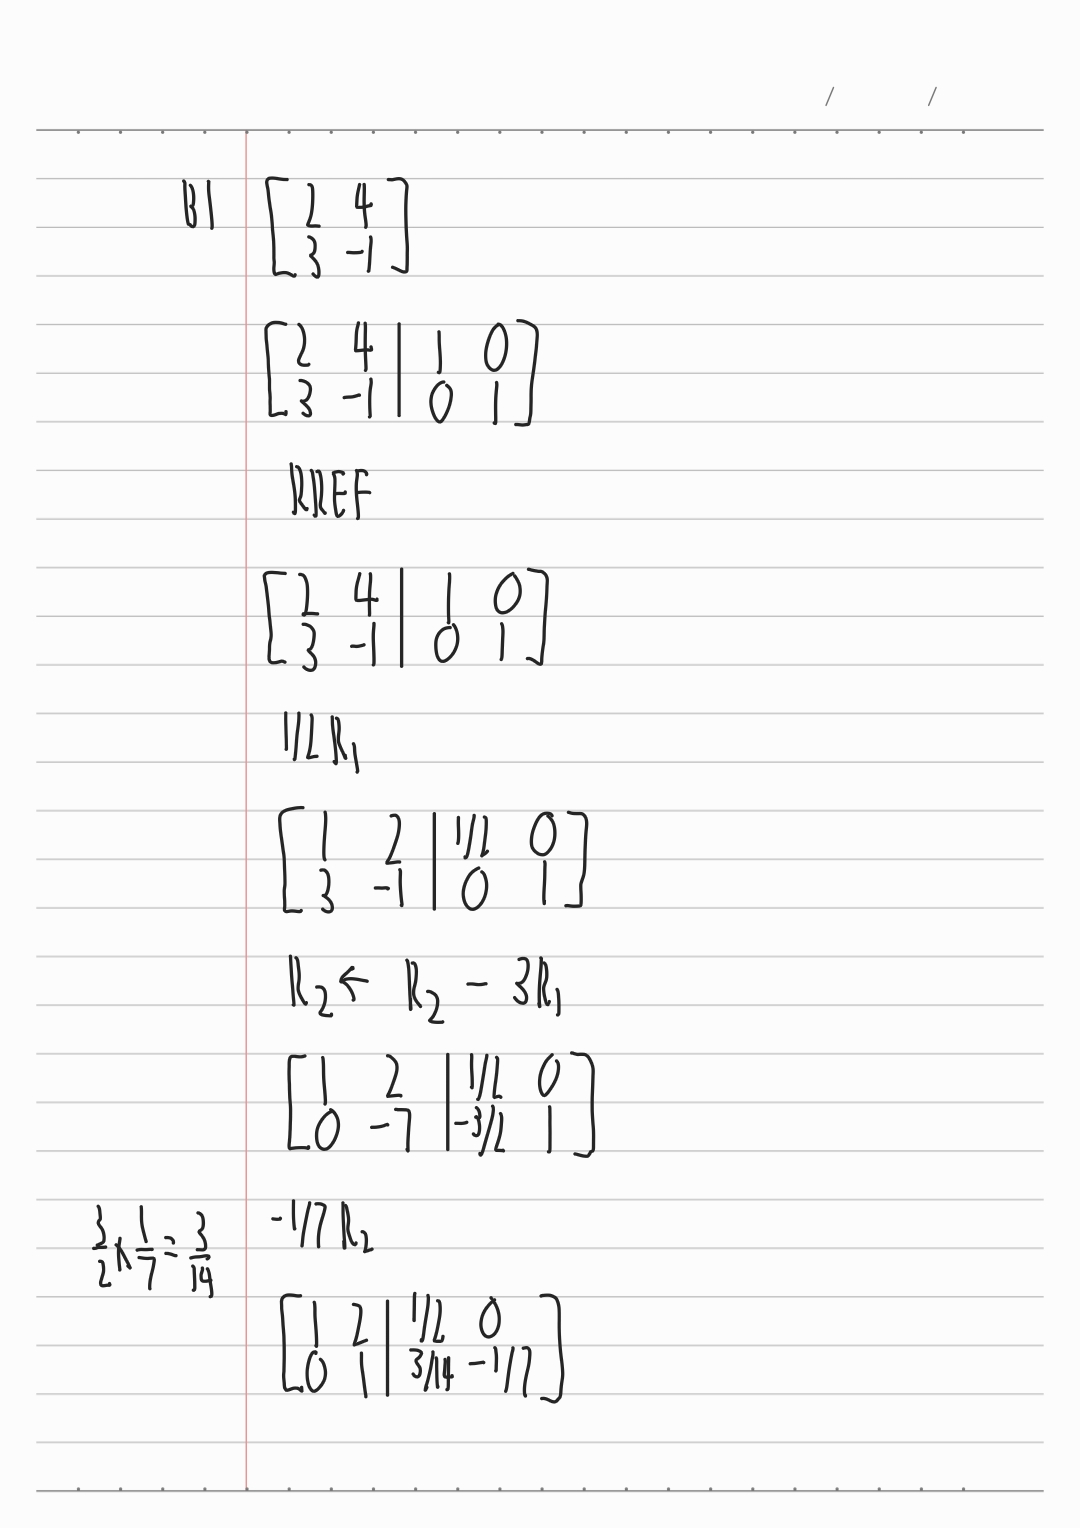 / /
B1 [ 2 4 ]
[ 3 -1 ]
[ 2 4 | 1 0 ]
[ 3 -1 | 0 1 ]
RREF
[ 2 4 | 1 0 ]
[ 3 -1 | 0 1 ]
1/2 R₁
[ 1 2 | 1/2 0 ]
[ 3 -1 | 0 1 ]
R₂ ← R₂ - 3R₁
[ 1 2 | 1/2 0 ]
[ 0 -7 | -3/2 1 ]
3/2 × 1/7 = 3/14 -1/7 R₂
[ 1 2 | 1/2 0 ]
[ 0 1 | 3/14 -1/7 ]